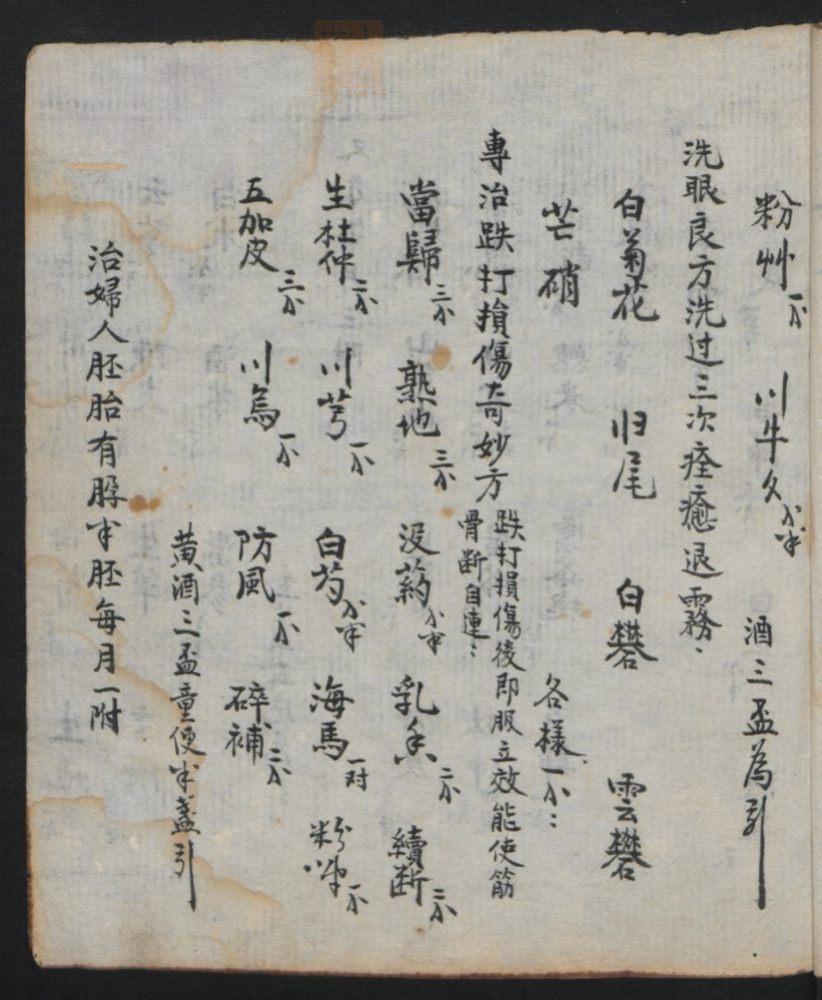 粉艸 一分 川牛夕 分半 酒三盃為引
洗眼良方洗过三次痊癒退霧、
白菊花 归尾 白礬 雲礬
芒硝 各樣一分:
專治跌打損傷奇妙方
跌打損傷後即服立效能使筋
骨断自連:
當歸 三分 熟地 三分 没药 分半 乳香 二分 續断 三分
生杜仲 二分 川芎 一分 白芍 分半 海馬 一对 粉艸 一分
五加皮 三分 川烏 一分 防風 一分 碎補 二分
黄酒三盃童便半盞引
治婦人胚胎有半胚每月一附